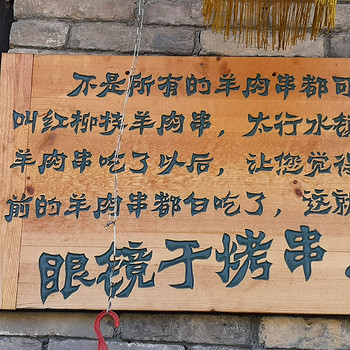 不是所有的羊肉串都可
叫红柳枝羊肉串，太行水
羊肉串吃了以后，让您觉得
前的羊肉串都白吃了，这
眼镜于烤串